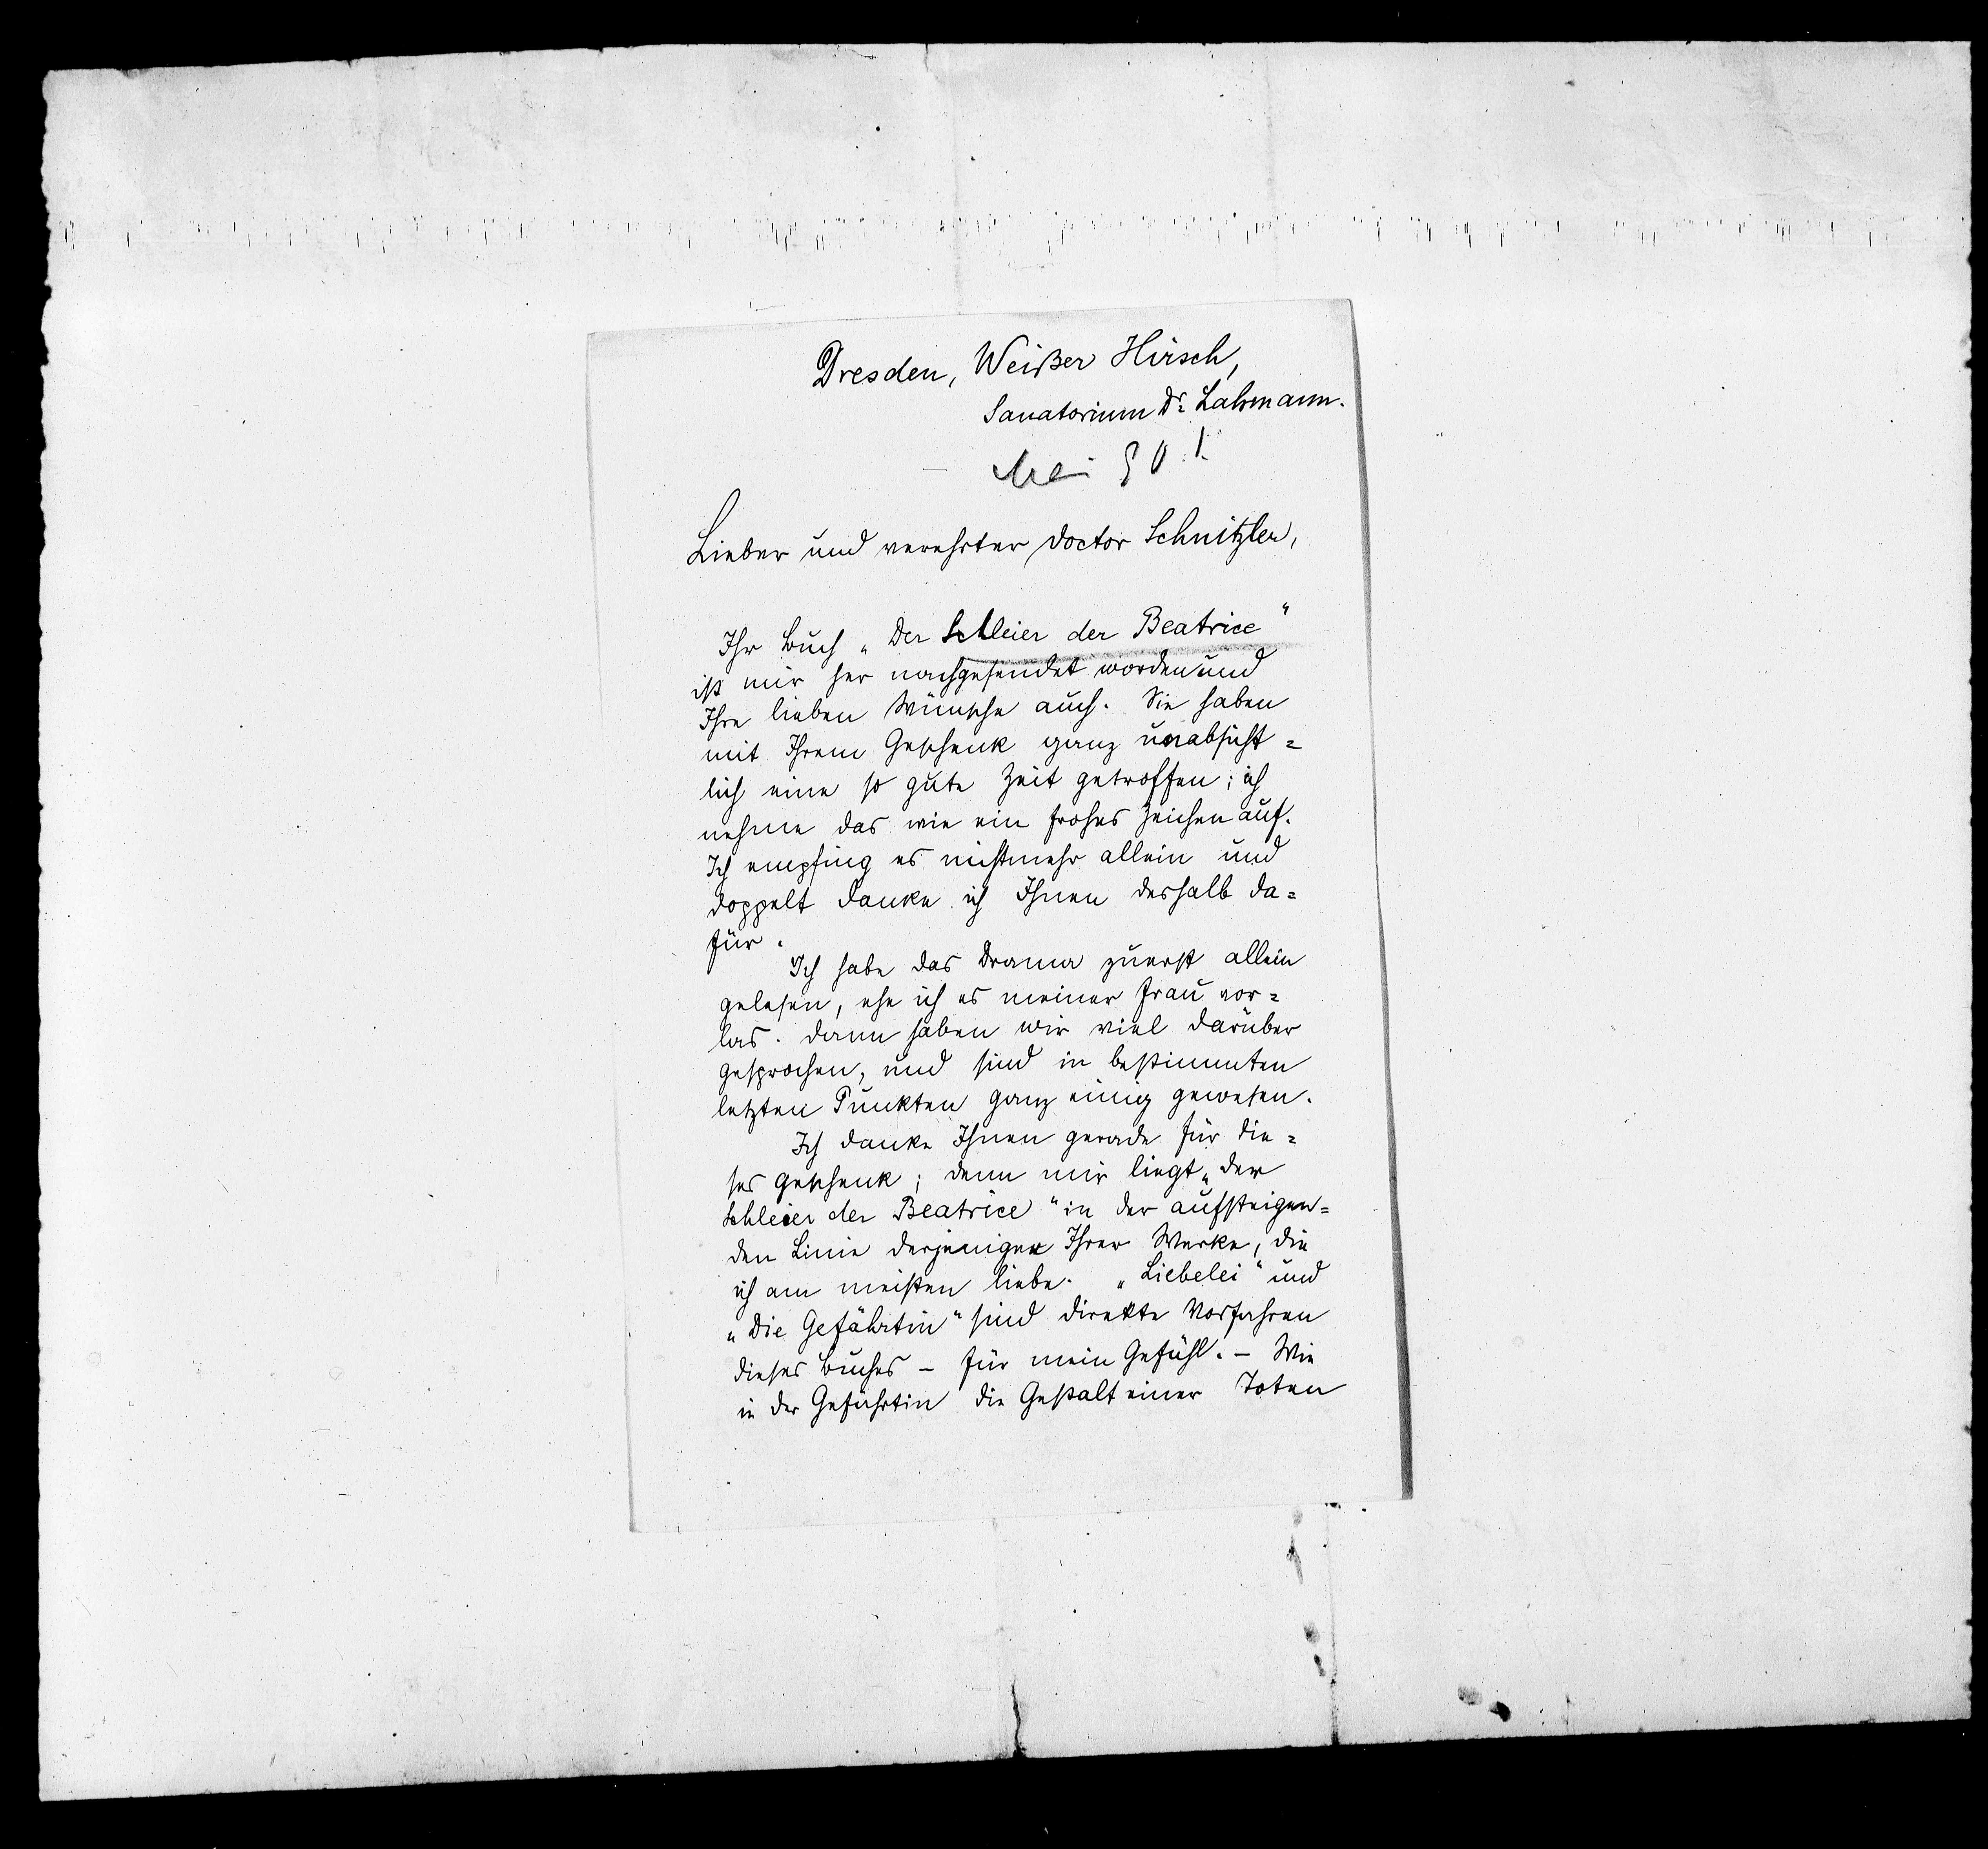 Dresden, Weißer Hirsch,
Sanatorium Dr. Lahmann.
Mai 901.
Lieber und verehrter Doctor Schnitzler,
Ihr Buch „Der Schleier der Beatrice“
ist mir her nachgesendet worden und
Ihre lieben Wünsche auch. Sie haben
mit Ihrem Geschenk ganz unabsicht=
lich eine so gute Zeit getroffen; ich
nehme das wie ein frohes Zeichen auf.
Ich empfing es nichtmehr allein und
doppelt danke ich Ihnen deshalb da=
für.
Ich habe das Drama zuerst allein
gelesen, ehe ich es meiner Frau vor=
las. Dann haben wir viel darüber
gesprochen, und sind in bestimmten
letzten Punkten ganz einig gewesen.
Ich danke Ihnen gerade für die=
ses Geschenk; denn mir liegt „der
Schleier der Beatrice“ in der aufsteigen=
den Linie derjenigen Ihrer Werke, die
ich am meisten liebe. „Liebelei“ und
„Die Gefährtin“ sind direkte Vorfahren
dieses Buches – für mein Gefühl. – Wie
in der Gefährtin die Gestalt einer Toten